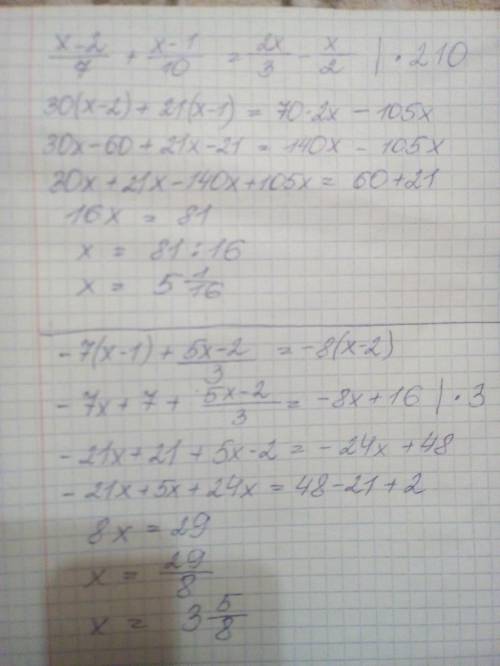 (x-2)/7 + (x-1)/10 = 2x/3 - x/2 | · 210
30(x-2) + 21(x-1) = 70·2x - 105x
30x-60+21x-21 = 140x - 105x
30x+21x-140x+105x = 60+21
16x = 81
x = 81 : 16
x = 5 1/16
-7(x-1) + (5x-2)/3 = -8(x-2)
-7x+7+ (5x-2)/3 = -8x+16 | · 3
-21x+21+5x-2 = -24x+48
-21x+5x+24x = 48-21+2
8x = 29
x = 29/8
x = 3 5/8